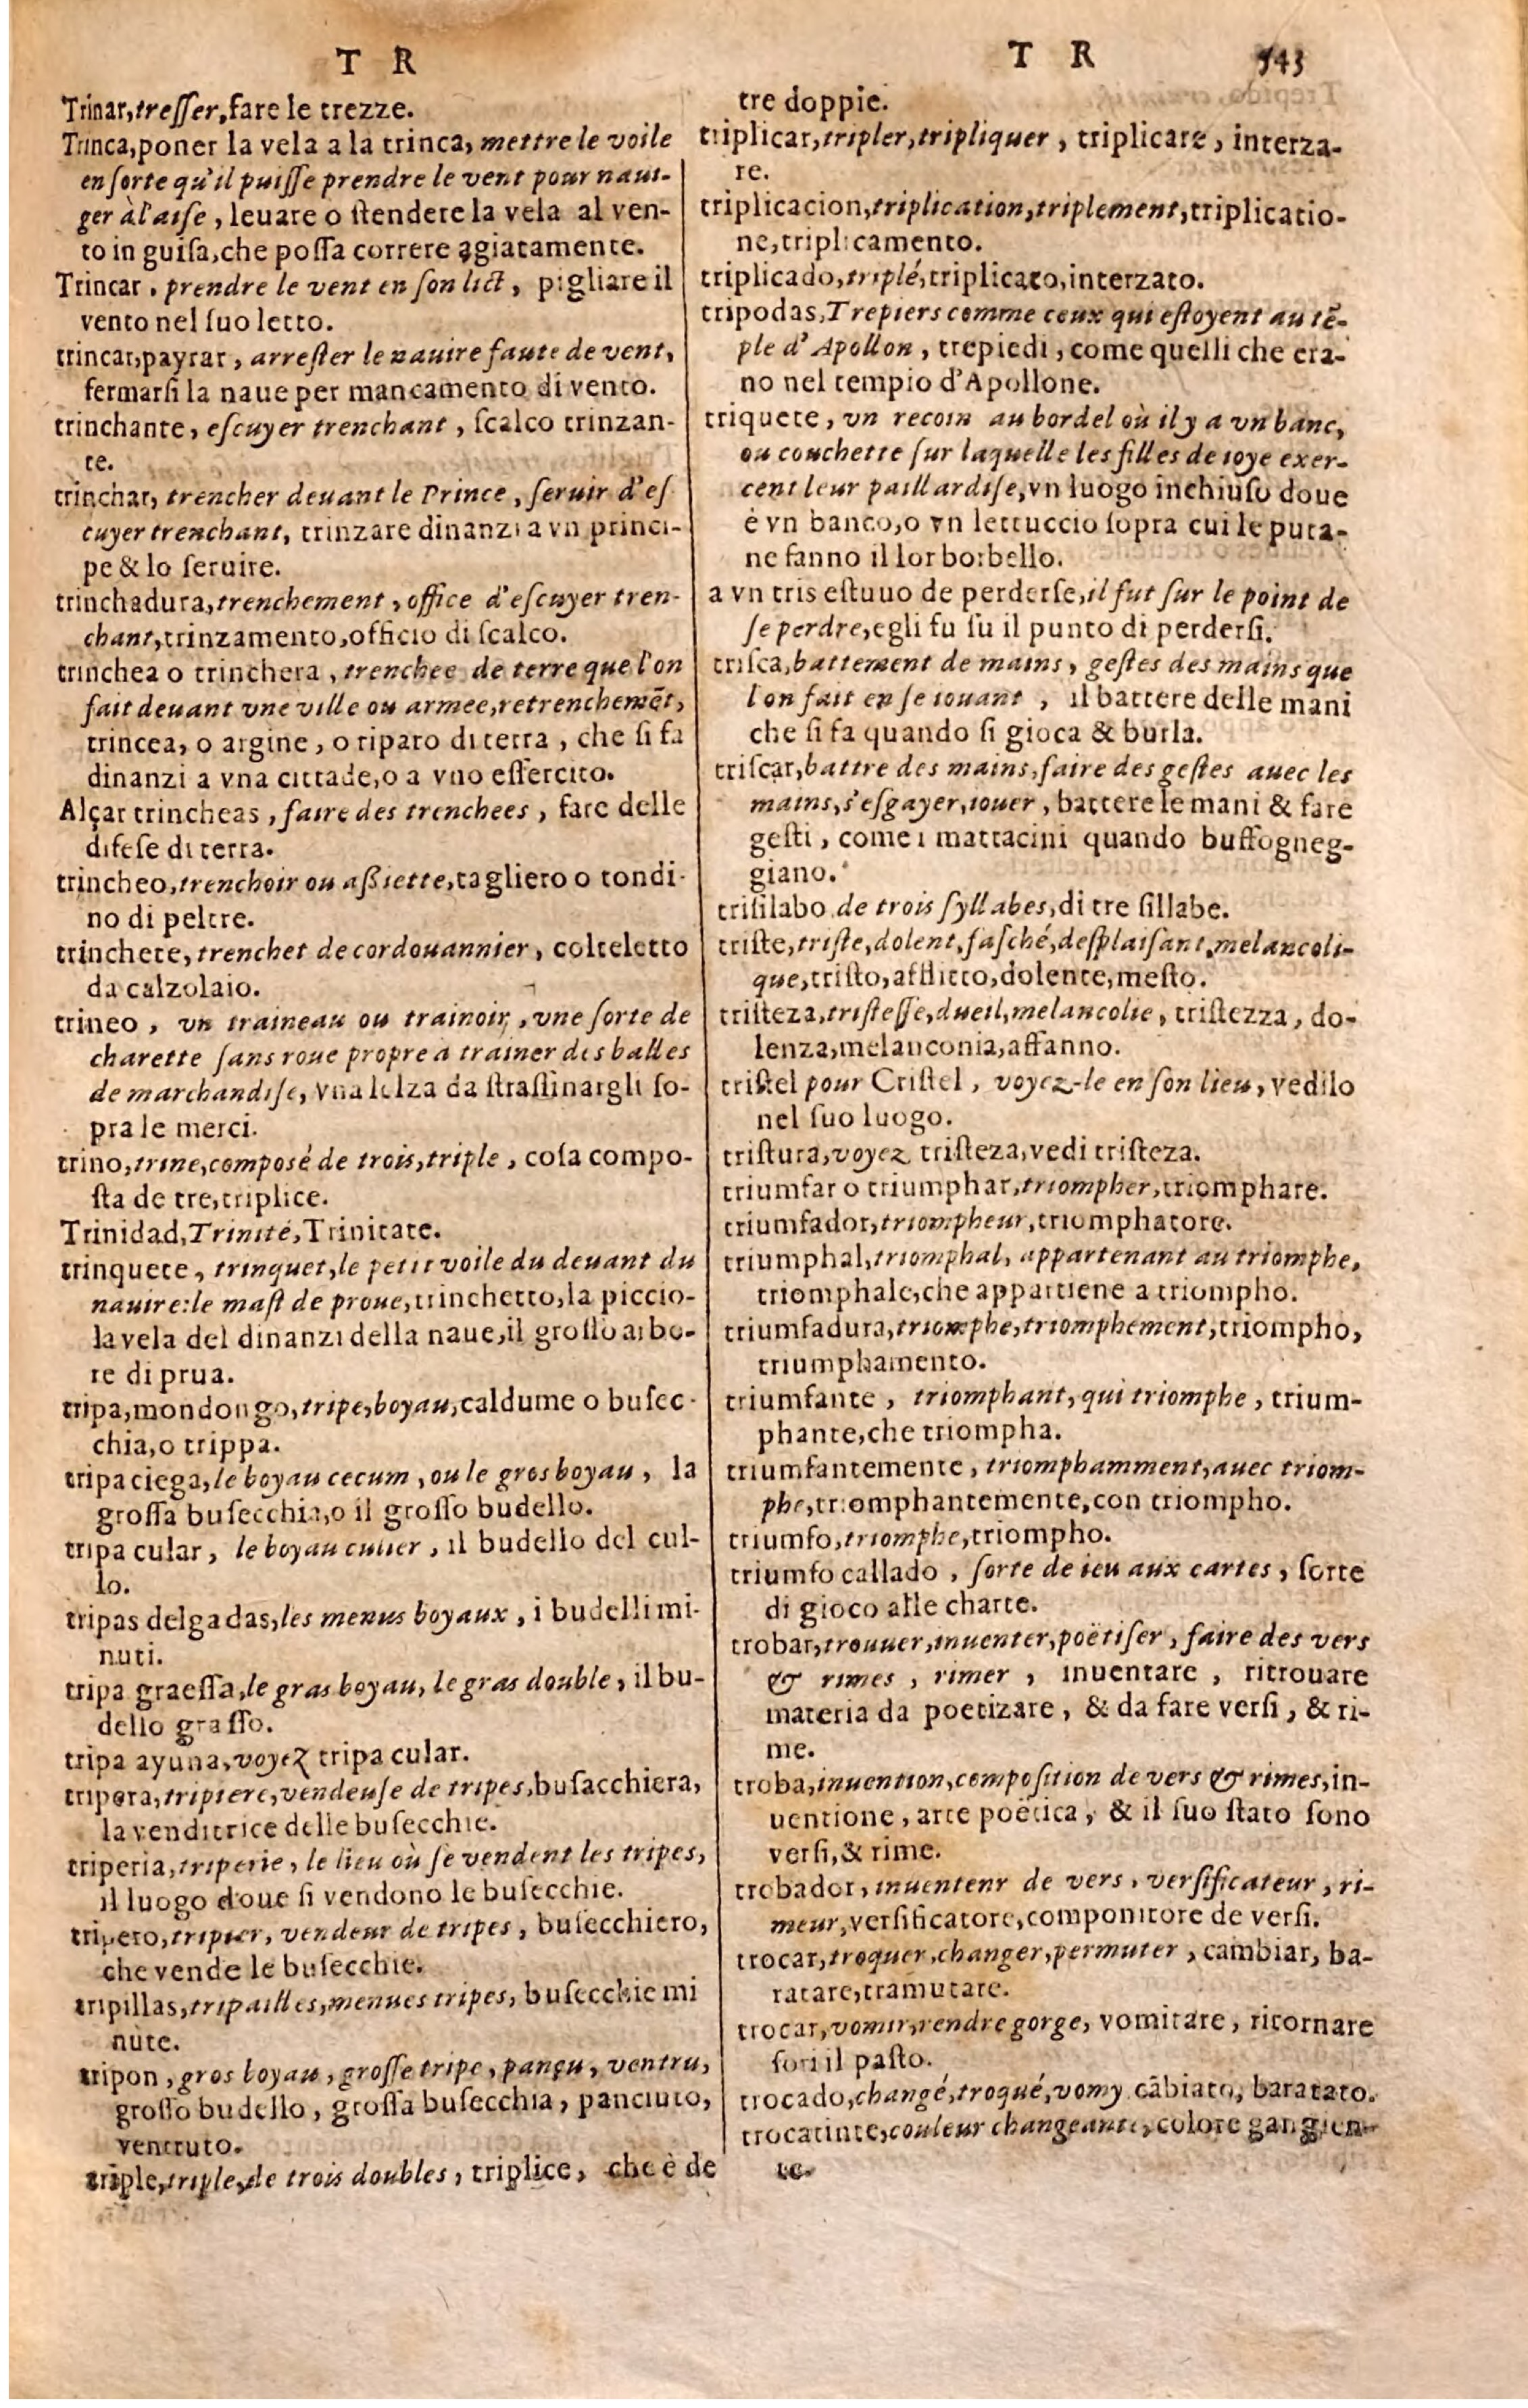 T R
Trinar, tresser, fare le trezze.
Trinca, poner la vela a la trinca, mettre le voile
en sorte qu'il puisse prendre le vent pour naui-
ger à l'aise, leuare o stendere la vela al ven-
to in guisa, che possa correre agiatamente.
Trincar. prendre le vent en son lict, pigliare il
vento nel suo letto.
trincar, payrar, arrester le nauire faute de vent,
fermarsi la naue per mancamento di vento.
trinchante, escuyer trenchant, scalco trinzan-
te.
trinchar, trencher deuant le Prince, seruir d'es
cuyer trenchant, trinzare dinanzi a vn princi-
pe & lo seruire.
trinchadura, trenchement, office d'escuyer tren-
chant, trinzamento, officio di scalco.
trinchea o trinchera, trenchee de terre que l'on
fait deuant vne ville ou armee, retrenchemēt,
trincea, o argine, o riparo di terra, che si fa
dinanzi a vna cittade, o a vno essercito.
Alçar trincheas, faire des trenchees, fare delle
difese di terra.
trincheo, trenchoir ou assiette, tagliero o tondi-
no di peltre.
trinchete, trenchet de cordouannier, colteletto
da calzolaio.
trineo, vn traineau ou trainoir, vne sorte de
charette sans roue propre a trainer des balles
de marchandise, vna lelza da strassinargli so-
pra le merci.
trino, trine, composé de trois, triple, cosa compo-
sta de tre, triplice.
Trinidad, Trinité, Trinitate.
trinquete, trinquet, le petit voile du deuant du
nauire: le mast de proue, trinchetto, la piccio-
la vela del dinanzi della naue, il grosso arbo-
re di prua.
tripa, mondongo, tripe, boyau, caldume o busec-
chia, o trippa.
tripa ciega, le boyau cecum, ou le gros boyau, la
grossa busecchia, o il grosso budello.
tripa cular, le boyau culier, il budello del cul-
lo.
tripas delgadas, les menus boyaux, i budelli mi-
nuti.
tripa graessa, le gras boyau, le gras double, il bu-
dello grasso.
tripa ayuna, voyez tripa cular.
tripera, tripiere, vendeuse de tripes, busacchiera,
la venditrice delle busecchie.
triperia, triperie, le lieu où se vendent les tripes,
il luogo doue si vendono le busecchie.
tripero, tripier, vendeur de tripes, busecchiero,
che vende le busecchie.
tripillas, tripailles, menues tripes, busecchie mi
nute.
tripon, gros boyau, grosse tripe, pançu, ventru,
grosso budello, grossa busecchia, panciuto,
ventruto.
triple, triple, de trois doubles, triplice, che è de
T R 543
tre doppie.
triplicar, tripler, tripliquer, triplicare, interza-
re.
triplicacion, triplication, triplement, triplicatio-
ne, triplicamento.
triplicado, triplé, triplicato, interzato.
tripodas, Trepiers comme ceux qui estoyent au tē-
ple d'Apollon, trepiedi, come quelli che era-
no nel tempio d'Apollone.
triquete, vn recoin au bordel où il y a vn banc,
ou couchette sur laquelle les filles de ioye exer-
cent leur paillardise, vn luogo inchiuso doue
è vn banco, o vn lettuccio sopra cui le puta-
ne fanno il lor borbello.
a vn tris estuuo de perderse, il fut sur le point de
se perdre, egli fu su il punto di perdersi.
trisca, battement de mains, gestes des mains que
l'on fait en se iouant, il battere delle mani
che si fa quando si gioca & burla.
triscar, battre des mains, faire des gestes auec les
mains, s'esgayer, iouer, battere le mani & fare
gesti, come i mattacini quando buffogneg-
giano.
trisilabo de trois syllabes, di tre sillabe.
triste, triste, dolent, fasché, desplaisant, melancoli-
que, tristo, afflitto, dolente, mesto.
tristeza, tristesse, dueil, melancolie, tristezza, do-
lenza, melanconia, affanno.
tristel pour Cristel, voyez-le en son lieu, vedilo
nel suo luogo.
tristura, voyez tristeza, vedi tristeza.
triumfar o triumphar, triompher, triomphare.
triumfador, triompheur, triomphatore.
triumphal, triomphal, appartenant au triomphe,
triomphale, che appartiene a triompho.
triumfadura, triomphe, triomphement, triompho,
triumphamento.
triumfante, triomphant, qui triomphe, trium-
phante, che triompha.
triumfantemente, triomphamment, auec triom-
phe, triomphantemente, con triompho.
triumfo, triomphe, triompho.
triumfo callado, sorte de ieu aux cartes, sorte
di gioco alle charte.
trobar, trouuer, inuenter, poëtiser, faire des vers
& rimes, rimer, inuentare, ritrouare
materia da poetizare, & da fare versi, & ri-
me.
troba, inuention, composition de vers & rimes, in-
uentione, arte poëtica, & il suo stato sono
versi, & rime.
trobador, inuentenr de vers, versificateur, ri-
meur, versificatore, componitore de versi.
trocar, troquer, changer, permuter, cambiar, ba-
ratare, tramutare.
trocar, vomir, rendre gorge, vomitare, ritornare
fori il pasto.
trocado, changé, troqué, vomy cābiato, baratato.
trocatinte, couleur changeante, colore gangien-
te.